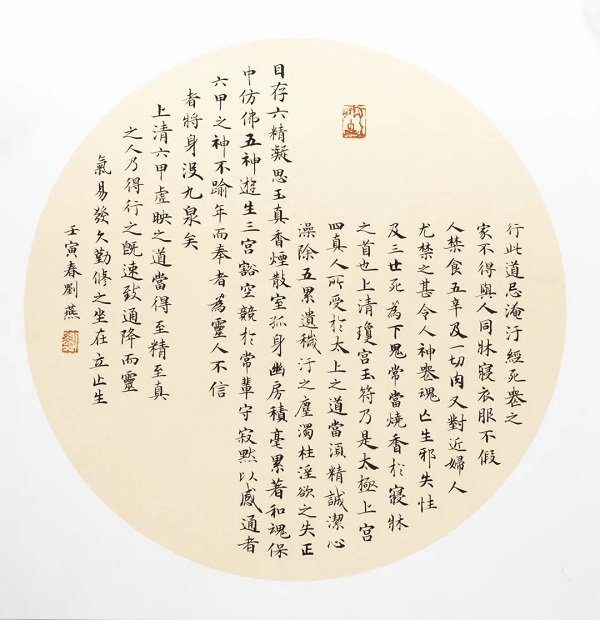 行此道忌淹汙經死喪之
家不得與人同牀寢衣服不假
人禁食五辛及一切肉又對近婦人
尤禁之甚令人神喪魂亡生邪失性
及三世死為下鬼常當燒香於寢牀
之首也上清瓊宮玉符乃是太極上宮
四真人所受於太上之道當須精誠潔心
澡除五累遺穢汙之塵濁杜淫欲之失正
目存六精凝思玉真香煙散室孤身幽房積毫累著和魂保
中仿佛五神遊生三宮豁空競於常輩守寂默以感通者
六甲之神不踰年而奉者為靈人不信
者將身沒九泉矣
上清六甲虛映之道當得至精至真
之人乃得行之既速致通降而靈
氣易發久勤修之坐在立亡生
壬寅春劉燕